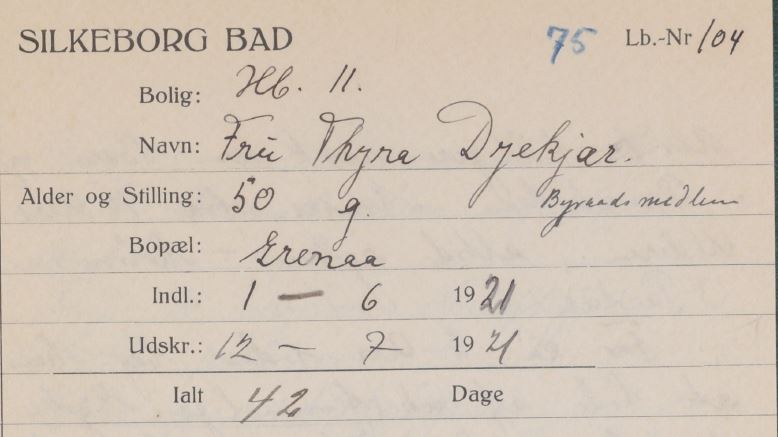 SILKEBORG BAD 75 Lb.-Nr 104
Bolig: Hb. 11.
Navn: Fru Thyra Dyekjær.
Alder og Stilling: 50 g. Byraadsmedlem
Bopæl: Grenaa
Indl.: 1 — 6 1921
Udskr.: 12 — 7 1921
Ialt 42 Dage